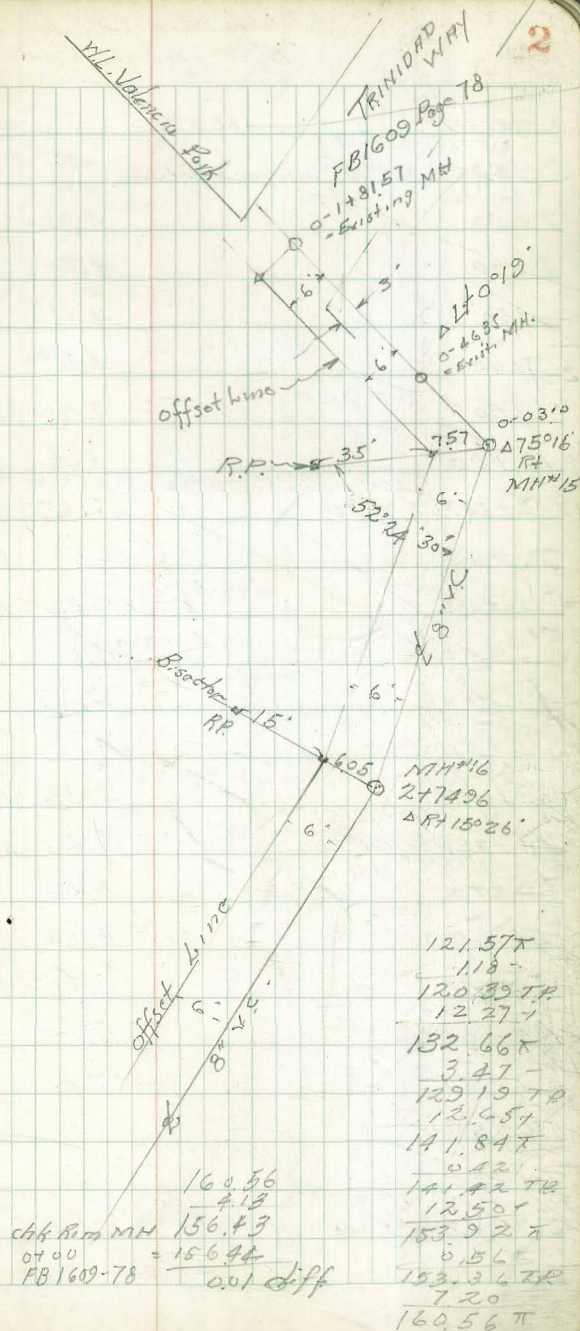 2
W.L. Valencia Park
TRINIDAD
WAY
FB1609 Page 78
0-1+81.57
= Existing MH
6'
3'
Δ Lt 0°19'
0-46.35
= Exist. MH.
6'
Offset Line
0-03.0
7.57
Δ75°16'
Rt
MH#15
R.P.
35'
6'
52°24'30"
8" V.C.
6'
Bisector
15'
RP.
6.05
MH#16
2+74.96
Δ Rt 15°26'
6'
Offset Line
6'
8" V.C.
121.57 π
1.18 -
120.39 T.P.
12.27 +
132.66 π
3.47 -
129.19 TP
12.65 +
141.84 π
0.42
141.42 TP.
12.50 +
153.92 π
0.56
153.36 TP
7.20
160.56 π
160.56
4.13
chk Rim MH 156.43
0+00 = 156.44
FB 1609-78 0.01 diff